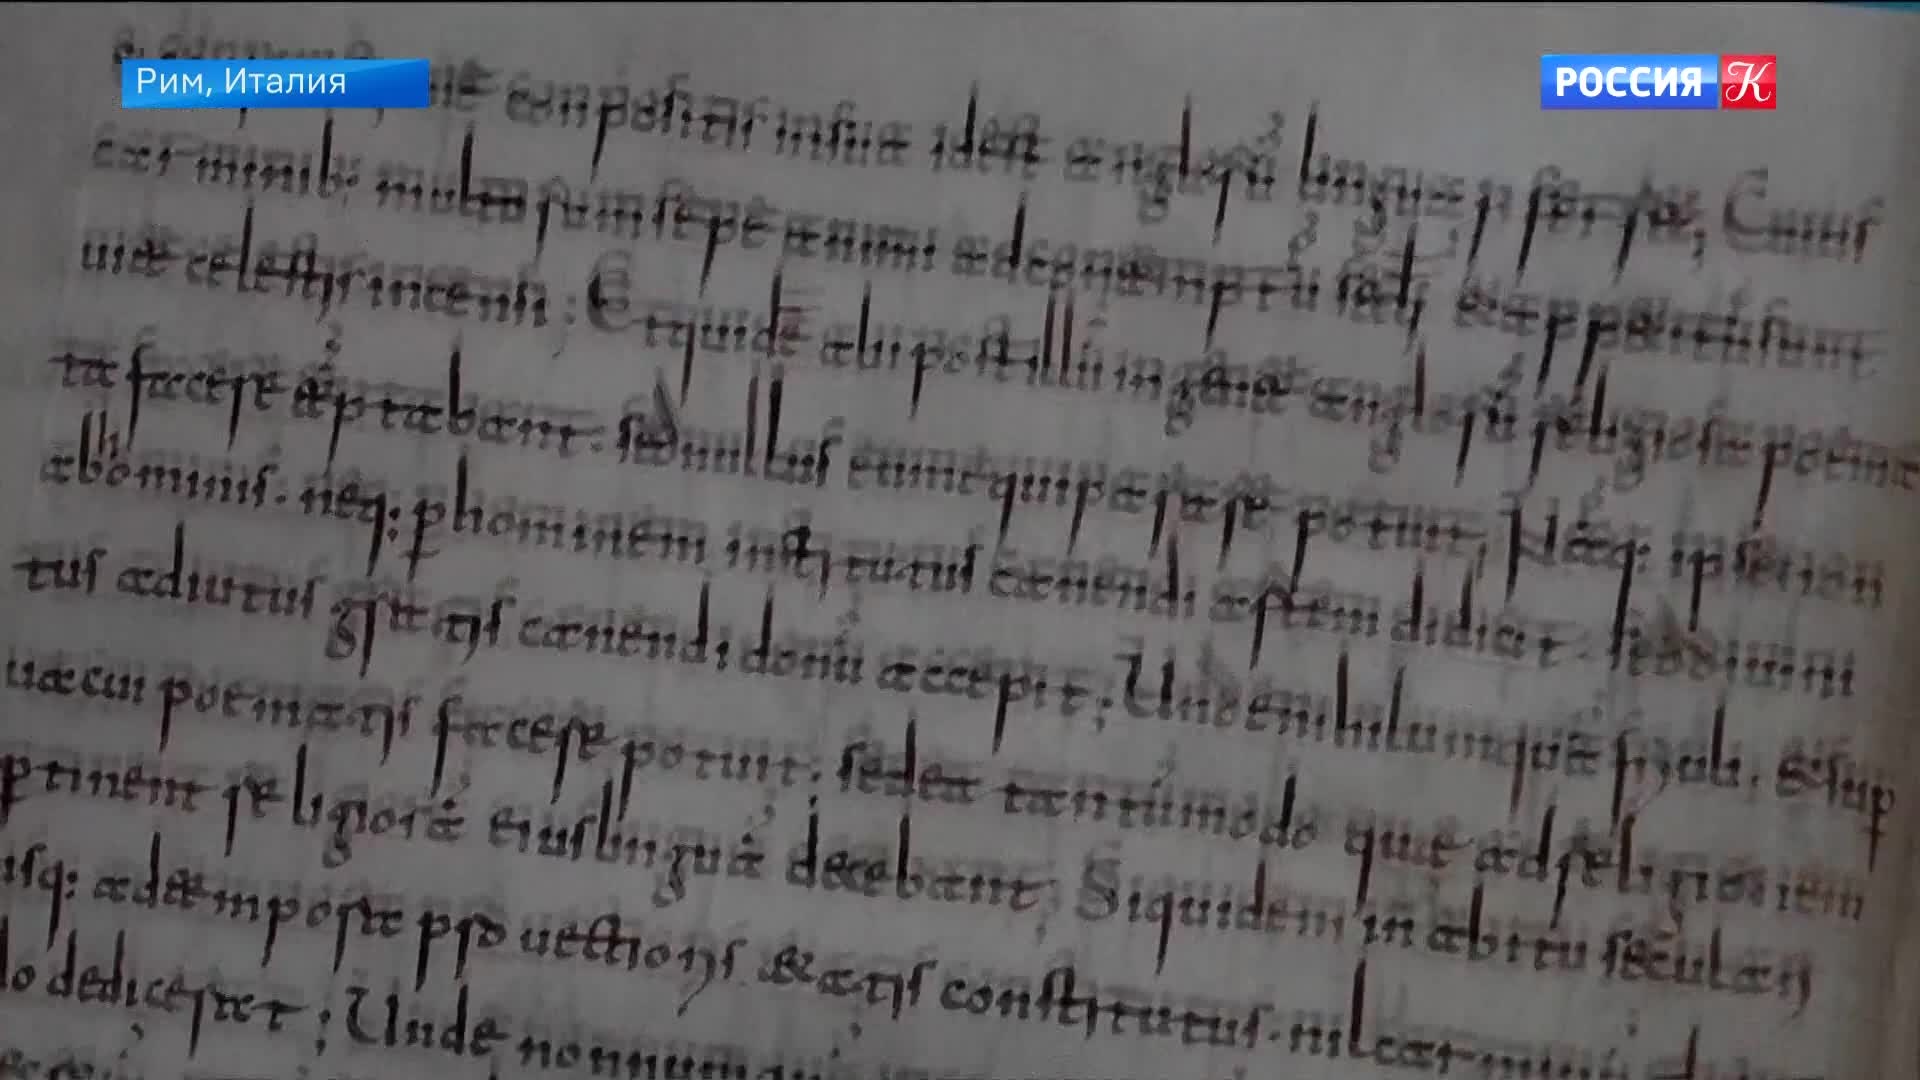 Рим, Италия
РОССИЯ К
conpositis in sua id est anglorū lingua p ferret; Cuius
carminib; multorum sepe animi ad contemptū sæcli & appetitū sunt
uitæ celestis incensi; Et quidē alii post illū in gente anglorū religiosa poema
ta facere temptabant. sed nullus eum æquiparare potuit; Náq; ipse non
ab hominis. neq; p hominem institutus canendi artem didicit. sed diuini
tus adiutus gratis canendi donū accepit; Unde nihil umquā friuoli. & sup
uacui poematis facere potuit; sed ea tantūmodo quæ ad religionem
ptinent religiosā eius linguā decebant; Siquidem in abitu seculari
usq; ad tempora prouectioris ætatis constitutus. nil carminū
lo dedicerat; Unde nonnumquā